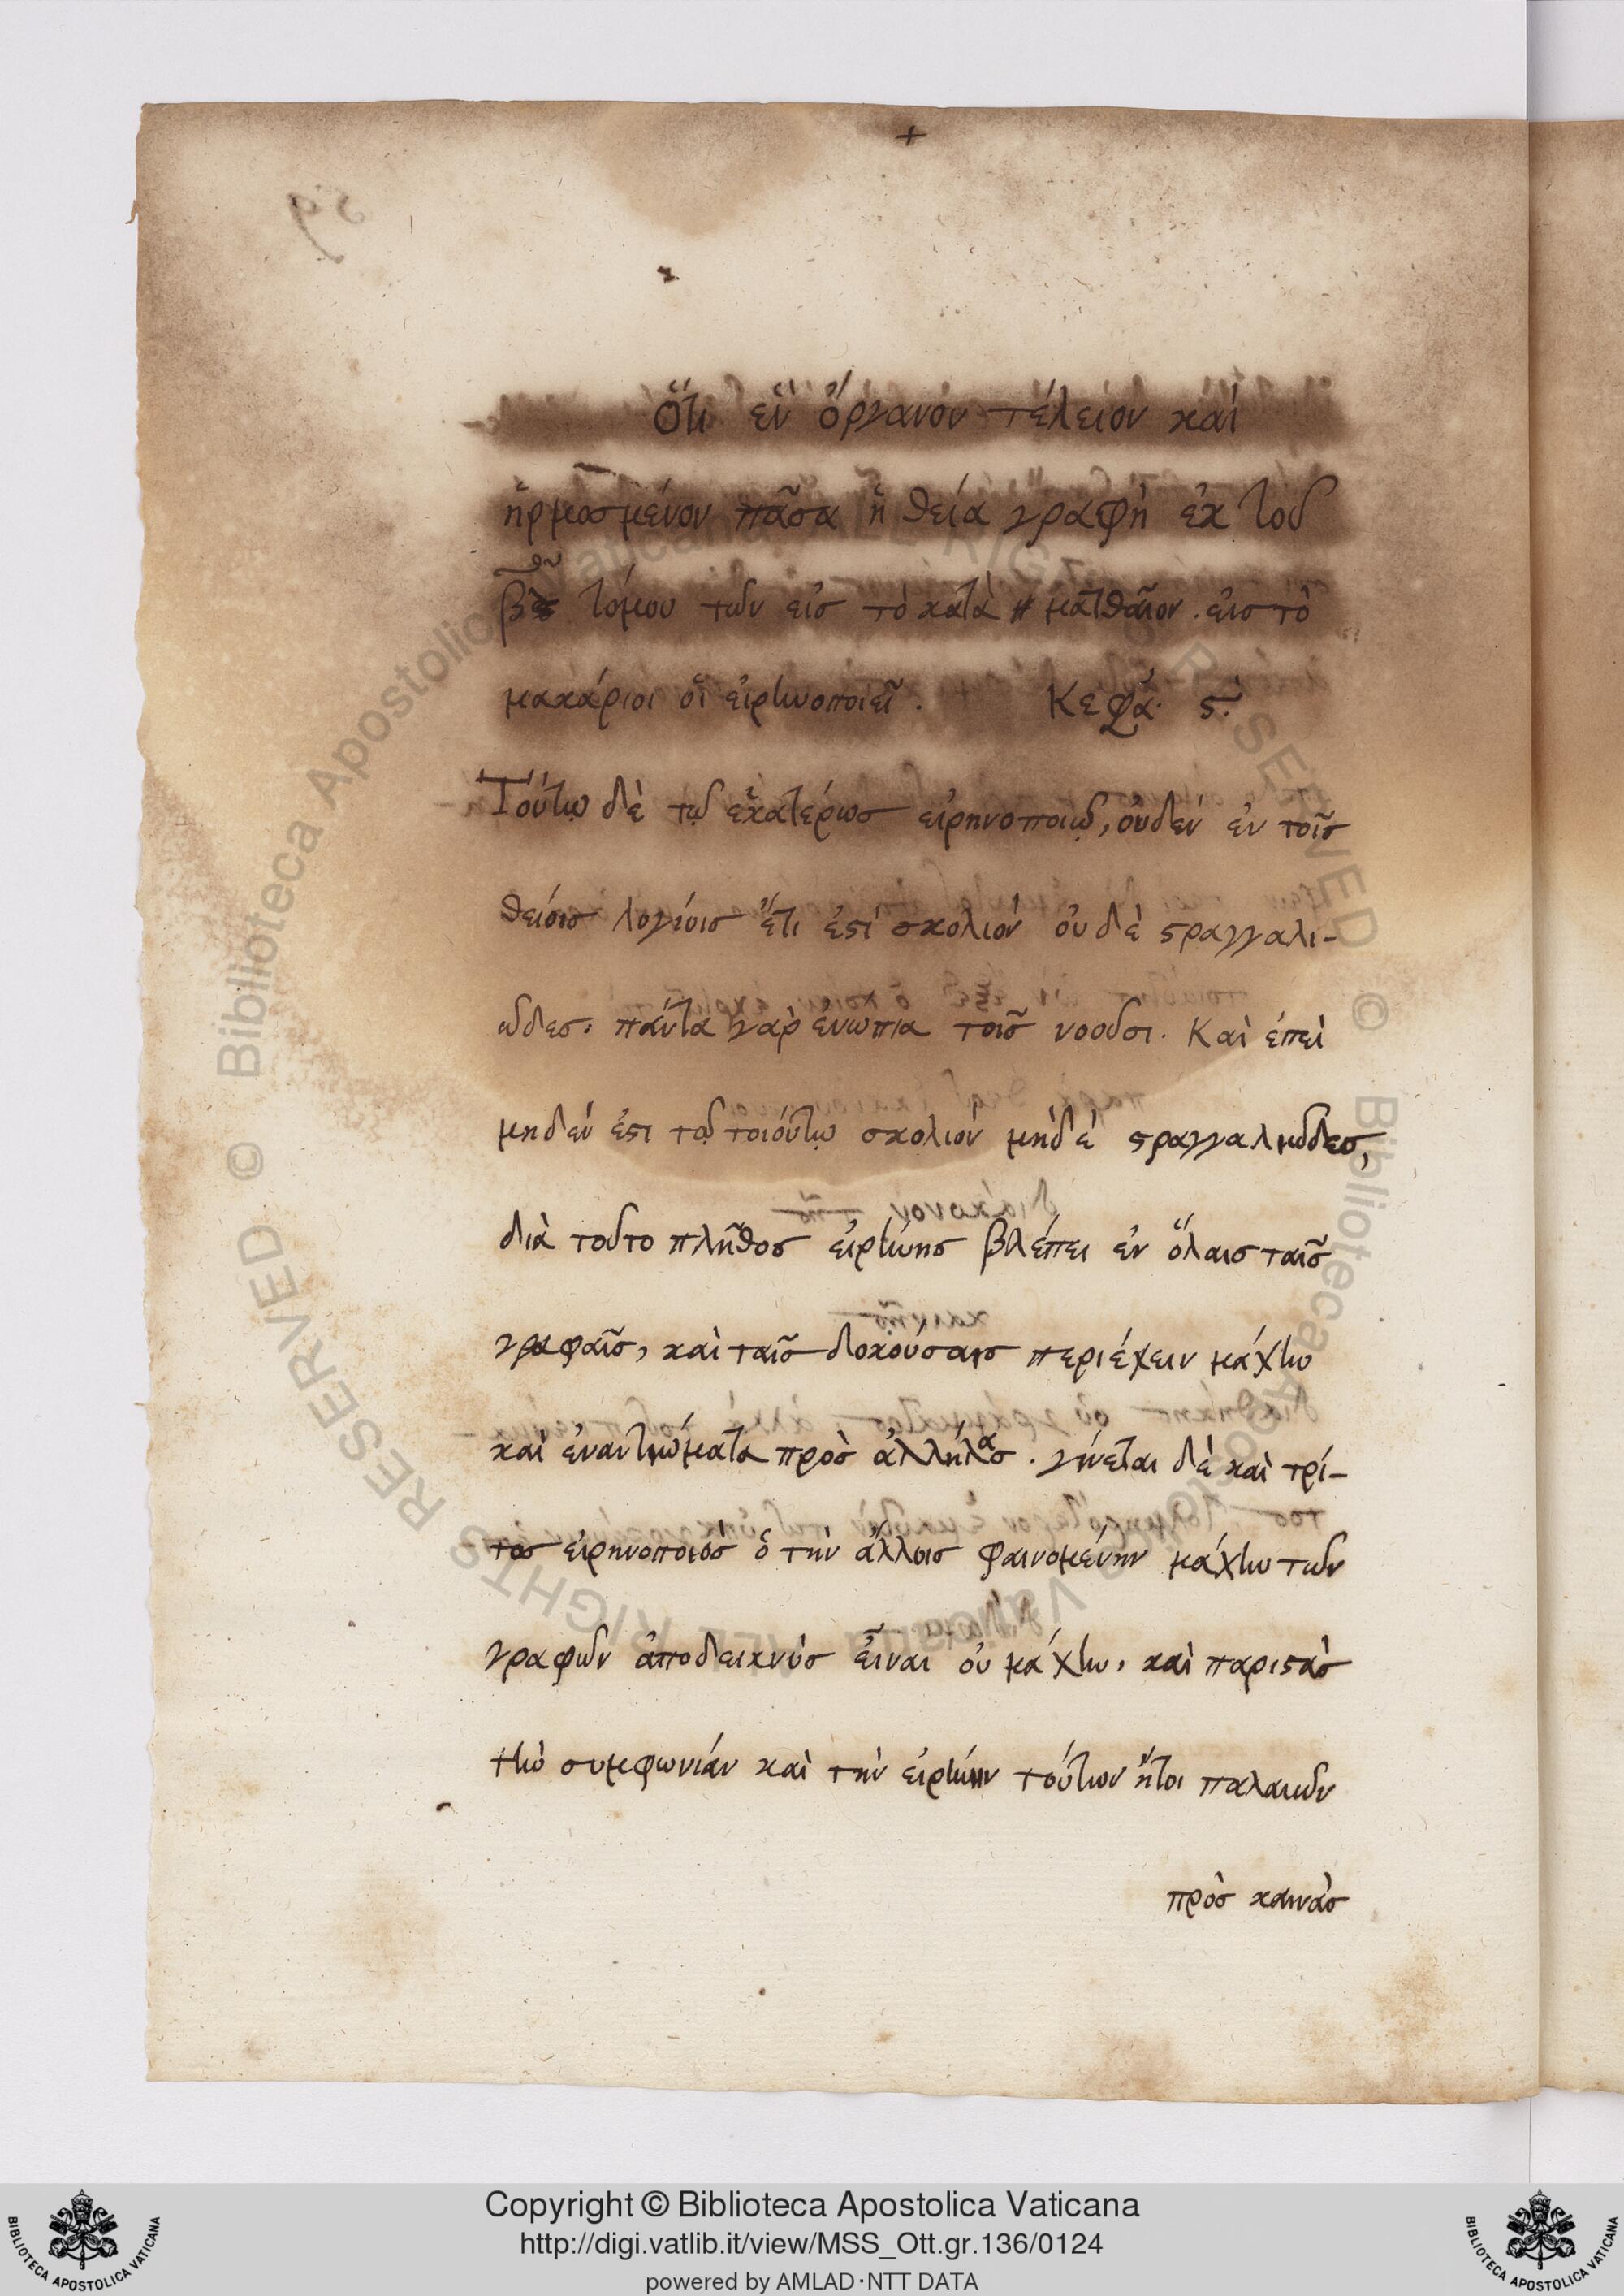 +
Ὅτι ἓν ὄργανον τέλειον καὶ
ἡρμοσμένον πᾶσα ἡ θεία γραφὴ ἐκ τοῦ
τόμου τῶν εἰς τὸ κατὰ ματθαῖον. εἰς τὸ
μακάριοι οἱ εἰρηνοποιεῖ. Κεφά. ϛ.
Τούτῳ δὲ τῷ ἑκατέρως εἰρηνοποιῷ, οὐδὲν ἐν τοῖς
θείοις λογίοις ἔτι ἐστὶ σκολιὸν οὐδὲ στραγγαλι-
ῶδες· πάντα γὰρ ἐνώπια τοῖς νοοῦσι. Καὶ ἐπεὶ
μηδέν ἐστι τῷ τοιούτῳ σκολιὸν μηδὲ στραγγαλιῶδες,
διὰ τοῦτο πλῆθος εἰρήνης βλέπει ἐν ὅλαις ταῖς
γραφαῖς, καὶ ταῖς δοκούσαις περιέχειν μάχην
καὶ ἐναντιώματα πρὸς ἀλλήλας. γίνεται δὲ καὶ τρί-
τος εἰρηνοποιὸς ὁ τὴν ἄλλοις φαινομένην μάχην τῶν
γραφῶν ἀποδεικνὺς εἶναι οὐ μάχην, καὶ παριστὰς
τὴν συμφωνίαν καὶ τὴν εἰρήνην τούτων ἤτοι παλαιῶν
πρὸς καινὰς
Copyright © Biblioteca Apostolica Vaticana
http://digi.vatlib.it/view/MSS_Ott.gr.136/0124
powered by AMLAD·NTT DATA
BIBLIOTECA APOSTOLICA VATICANA
BIBLIOTECA APOSTOLICA VATICANA